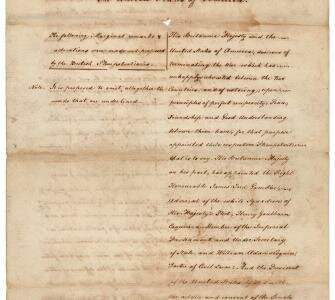 The following Marginal remarks &
alterations are made and proposed
by the British Plenipotentiaries.
Note. It is proposed to omit altogether the
words that are underlined.
His Britannic Majesty and the
United States of America, desirous of
terminating the War which has
unhappily subsisted between the two
Countries, and of restoring, upon
principles of perfect reciprocity, Peace,
Friendship and Good Understanding
between them have, for that purpose
appointed their respective Plenipotentiaries
that is to say, His Britannic Majesty
on his part, has appointed the Right
Honourable James Lord Gambier,
Admiral of the white Squadron of
His Majesty's Fleet, Henry Goulburn
Esquire a Member of the Imperial
Parliament and Under Secretary
of State, and William Adams Esquire
Doctor of Civil Laws: And the President
of the United States, by
the advice and consent of the Senate